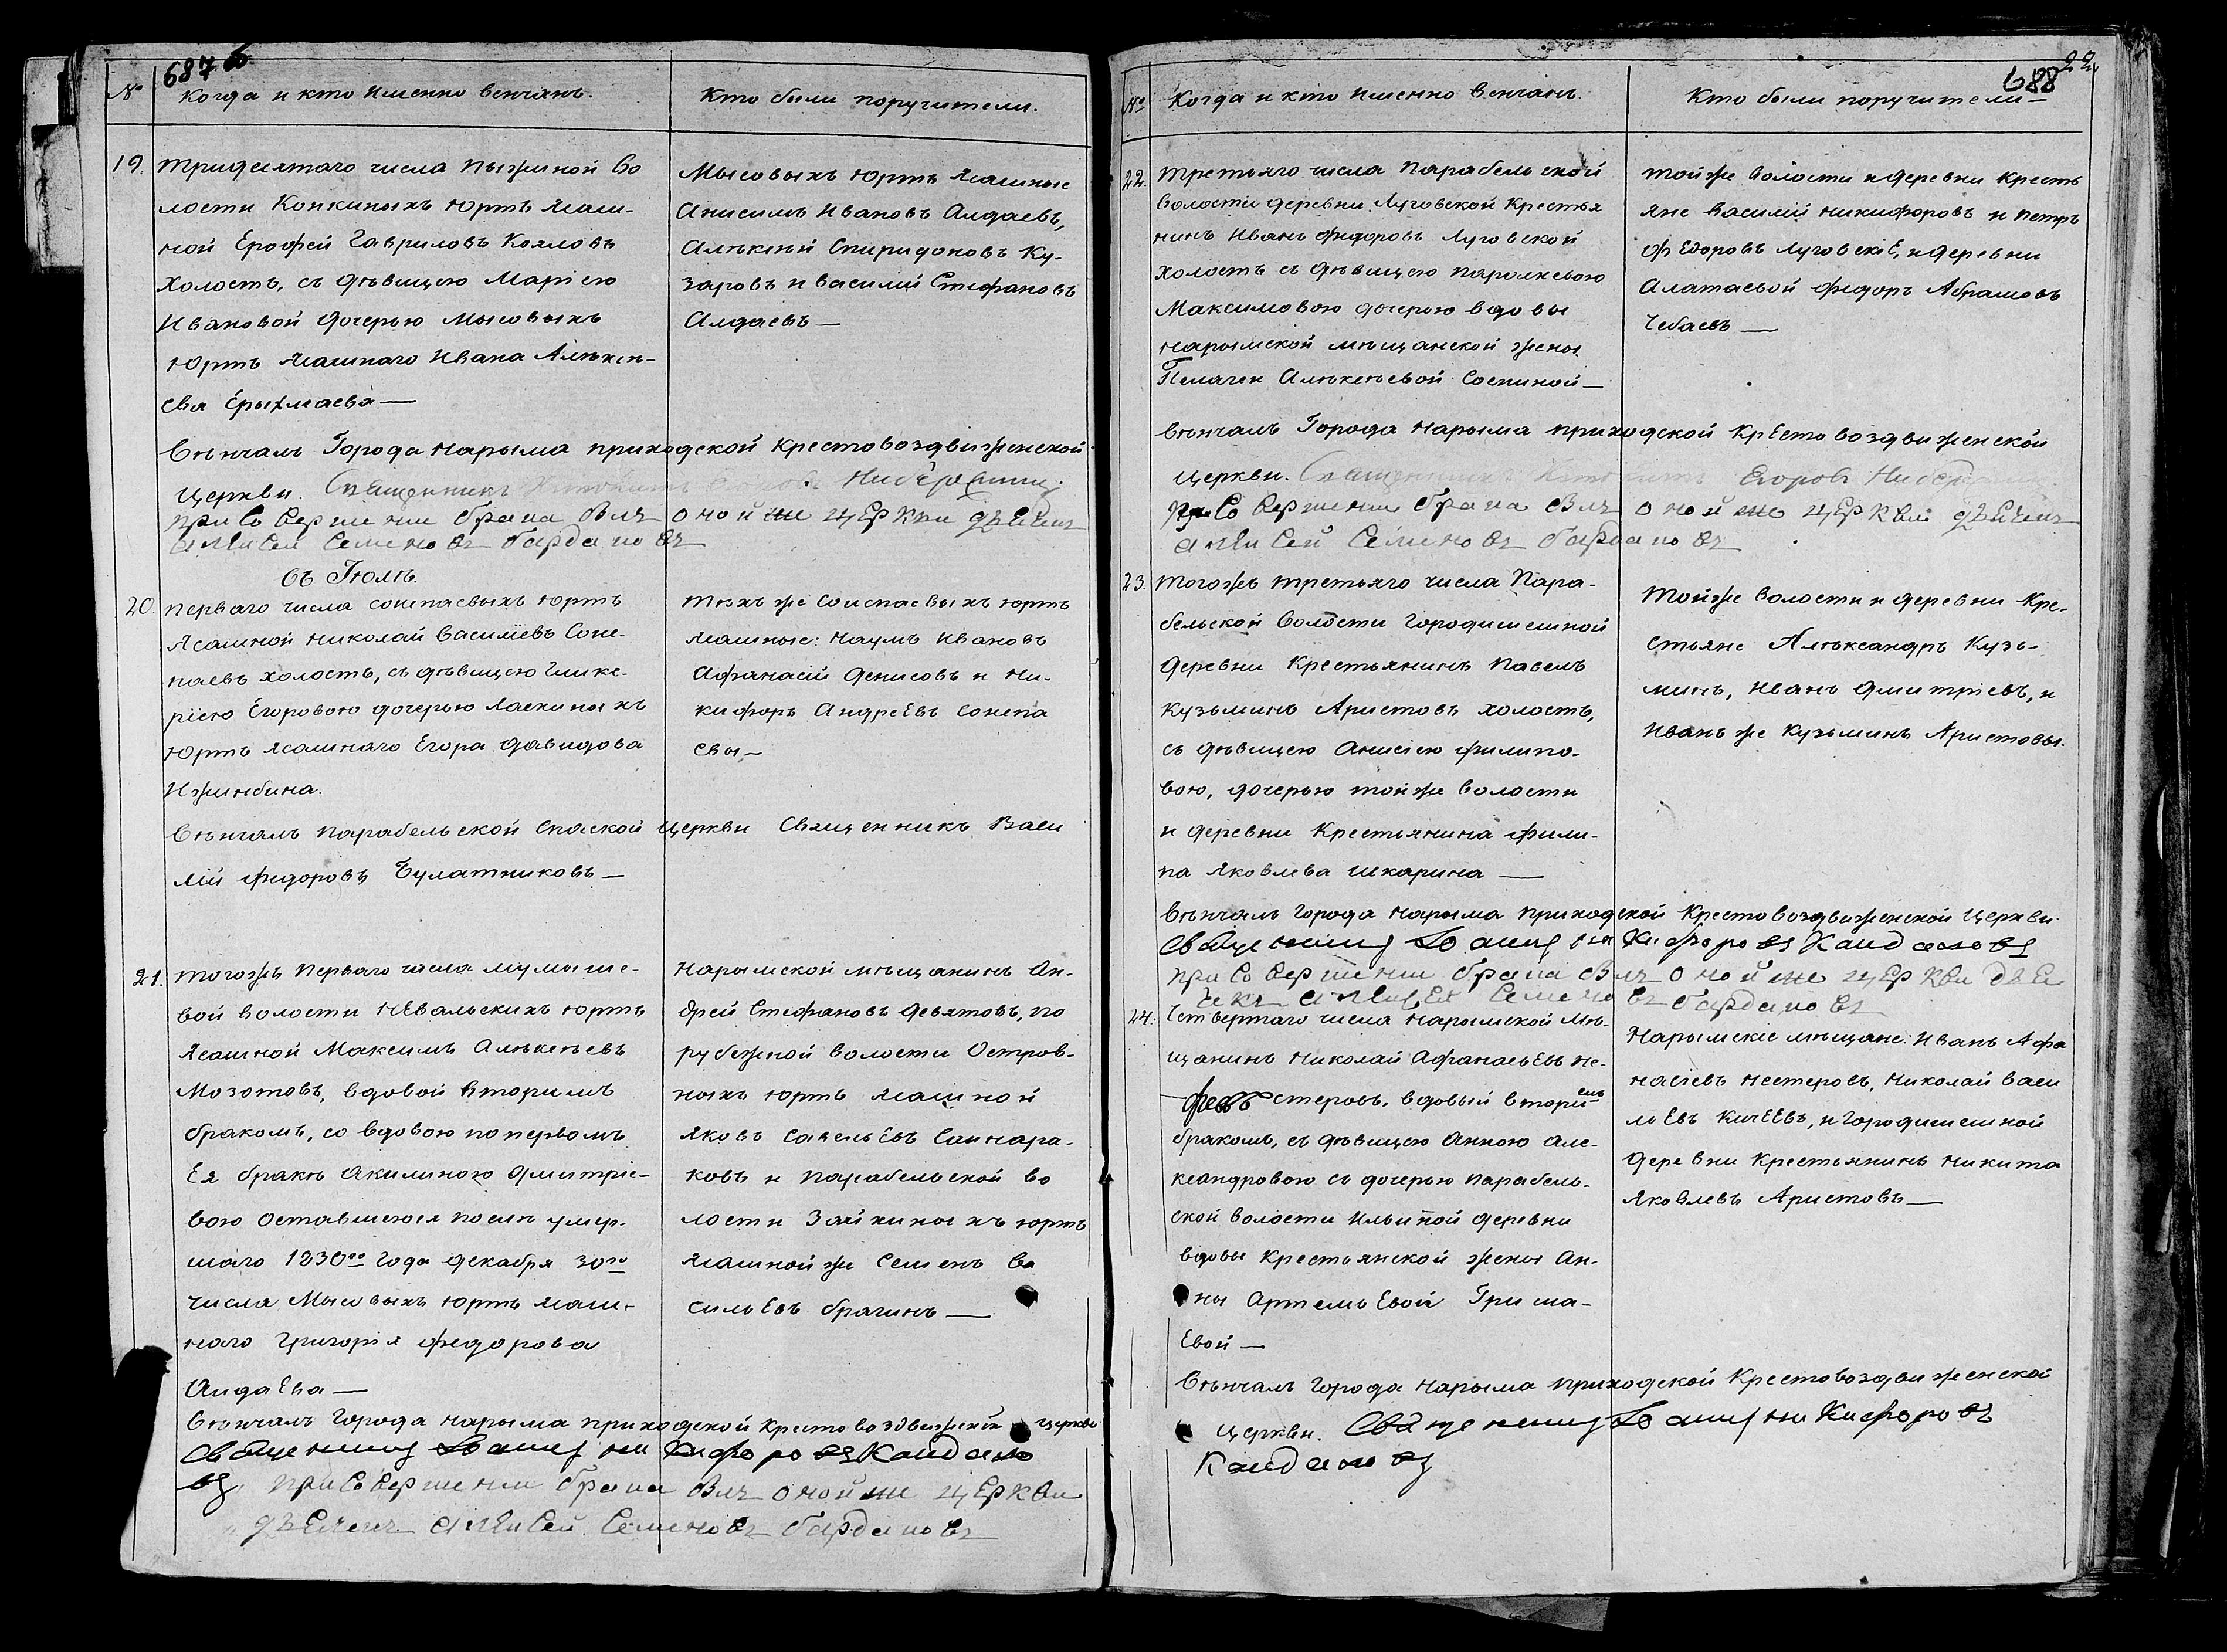 687 б
№ Когда и кто именно венчанъ. Кто были поручители.
19. тридсятаго числа Пыжиной во
лости Конкиныхъ юртъ ясаш-
ной Ерофей Гавриловъ Кояловъ
холостъ, съ дѣвицею Маріею
Ивановой дочерью Мысовыхъ
юртъ ясашнаго Ивана Алѣкси-
ева
Мысовыхъ юртъ ясашные
Анисимъ Ивановъ Алдаевъ,
Алѣксѣй Спиридоновъ Ку-
заровъ и Василій Стефановъ
Алдаевъ —
Вѣнчалъ Города Нарыма приходской Крестовоздвиженской
церкви. Священникъ
при Совершении брака былъ оной же церкви дьячекъ
Алексей Семеновъ
Съ Іюля.
20. перваго числа Сонспаевыхъ юртъ
Ясашной Николай Василіевъ Сонс-
паевъ холостъ, съ дѣвицею Глике-
ріею Егоровою дочерью Ласкиныхъ
юртъ ясашнаго Егора Давидова
Ижинбина.
тѣхъ же Сонспаевыхъ юртъ
ясашные: Наумъ Ивановъ
Афанасій Денисовъ и Ни-
кифоръ Андреевъ Сонспа
евы —
Вѣнчалъ Парабельской Спаской церкви Священникъ Васи
лій Федоровъ Булатниковъ —
21. тогожъ перваго числа
вой волости Невальскихъ юртъ
Ясашной Максимъ Алѣксѣевъ
Мозотовъ, вдовой вторымъ
бракомъ, со вдовою по первомъ
Ея бракѣ Акилиною Дмитріе-
вою оставшеюся послѣ умер-
шаго 1830го года Декабря 30го
числа Мысовыхъ юртъ ясаш-
наго Григорія Федорова
Алдаева —
Нарымской мѣщанинъ Ан-
дрей Стефановъ Девятовъ, По
рубежной волости Остров-
ныхъ юртъ ясашной
Яковъ Савельевъ Сайнара-
ковъ и Парабельской во
лости Зайкиныхъ юртъ
ясашной же Семенъ Ва
сильевъ Брагинъ —
Вѣнчалъ Города Нарыма приходской Крестовоздвиженской церкви
Священникъ Іоаннъ Никифоровъ Кайдало
въ, при Совершении брака былъ оной же церкви
дьячекъ Алексей Семеновъ
22
688
№ Когда и кто именно венчанъ. Кто были поручители —
22. третьяго числа Парабельской
волости деревни Луговской Крестья
нинъ Иванъ Федоровъ Луговской
холостъ съ дѣвицею Парасксвою
Максимовою дочерью вдовы
нарымской мѣщанской жены
Пелагеи Алѣксѣевой Соспиной —
тойже волости и деревни кресть
яне Василій Никифоровъ и Петръ
Федоровъ Луговскіе, и деревни
Алатаевой Федоръ Абрамовъ
Чебаевъ —
вѣнчалъ Города Нарыма приходской Крестовоздвиженской
церкви. Священникъ Егоровъ
при Совершении брака былъ оной же церкви дьячекъ
Алексей Семеновъ
23. тогожъ третьяго числа Пара-
бельской волости Городишешной
деревни Крестьянинъ Павелъ
Кузьминъ Аристовъ холостъ,
съ дѣвицею Анисіею Филипо-
вою, дочерью тойже волости
и деревни Крестьянина Фили-
па Яковлева Шкарина —
тойже волости и деревни Кре-
стьяне Алѣксандръ Кузь-
минъ, Иванъ Дмитріевъ, и
Иванъ же Кузьминъ Аристовы.
вѣнчалъ города Нарыма приходской Крестовоздвиженской церкви.
Священникъ Іоаннъ Никифоровъ Кайдаловъ
при Совершении брака былъ оной же церкви дьея
чекъ Алексей Семеновъ
24. Четвертаго числа Нарымской Мѣ-
щанинъ Николай Афанасьевъ Не-
стеровъ, вдовый вторымъ
бракомъ, съ дѣвицею Анною Але-
ксандровою съ дочерью Парабель-
ской волости Ильиной деревни
вдовы Крестьянской жены Ан-
ны Артемьевой Гриша-
евой —
Нарымскіе мѣщане: Иванъ Афа
насіевъ Нестеровъ, Николай Васи
льевъ Кичеевъ, и Городишешной
деревни Крестьянинъ Никита
Яковлевъ Аристовъ —
Вѣнчалъ города Нарыма приходской Крестовоздвиженской
церкви. Священникъ Іоаннъ Никифоровъ
Кайдаловъ